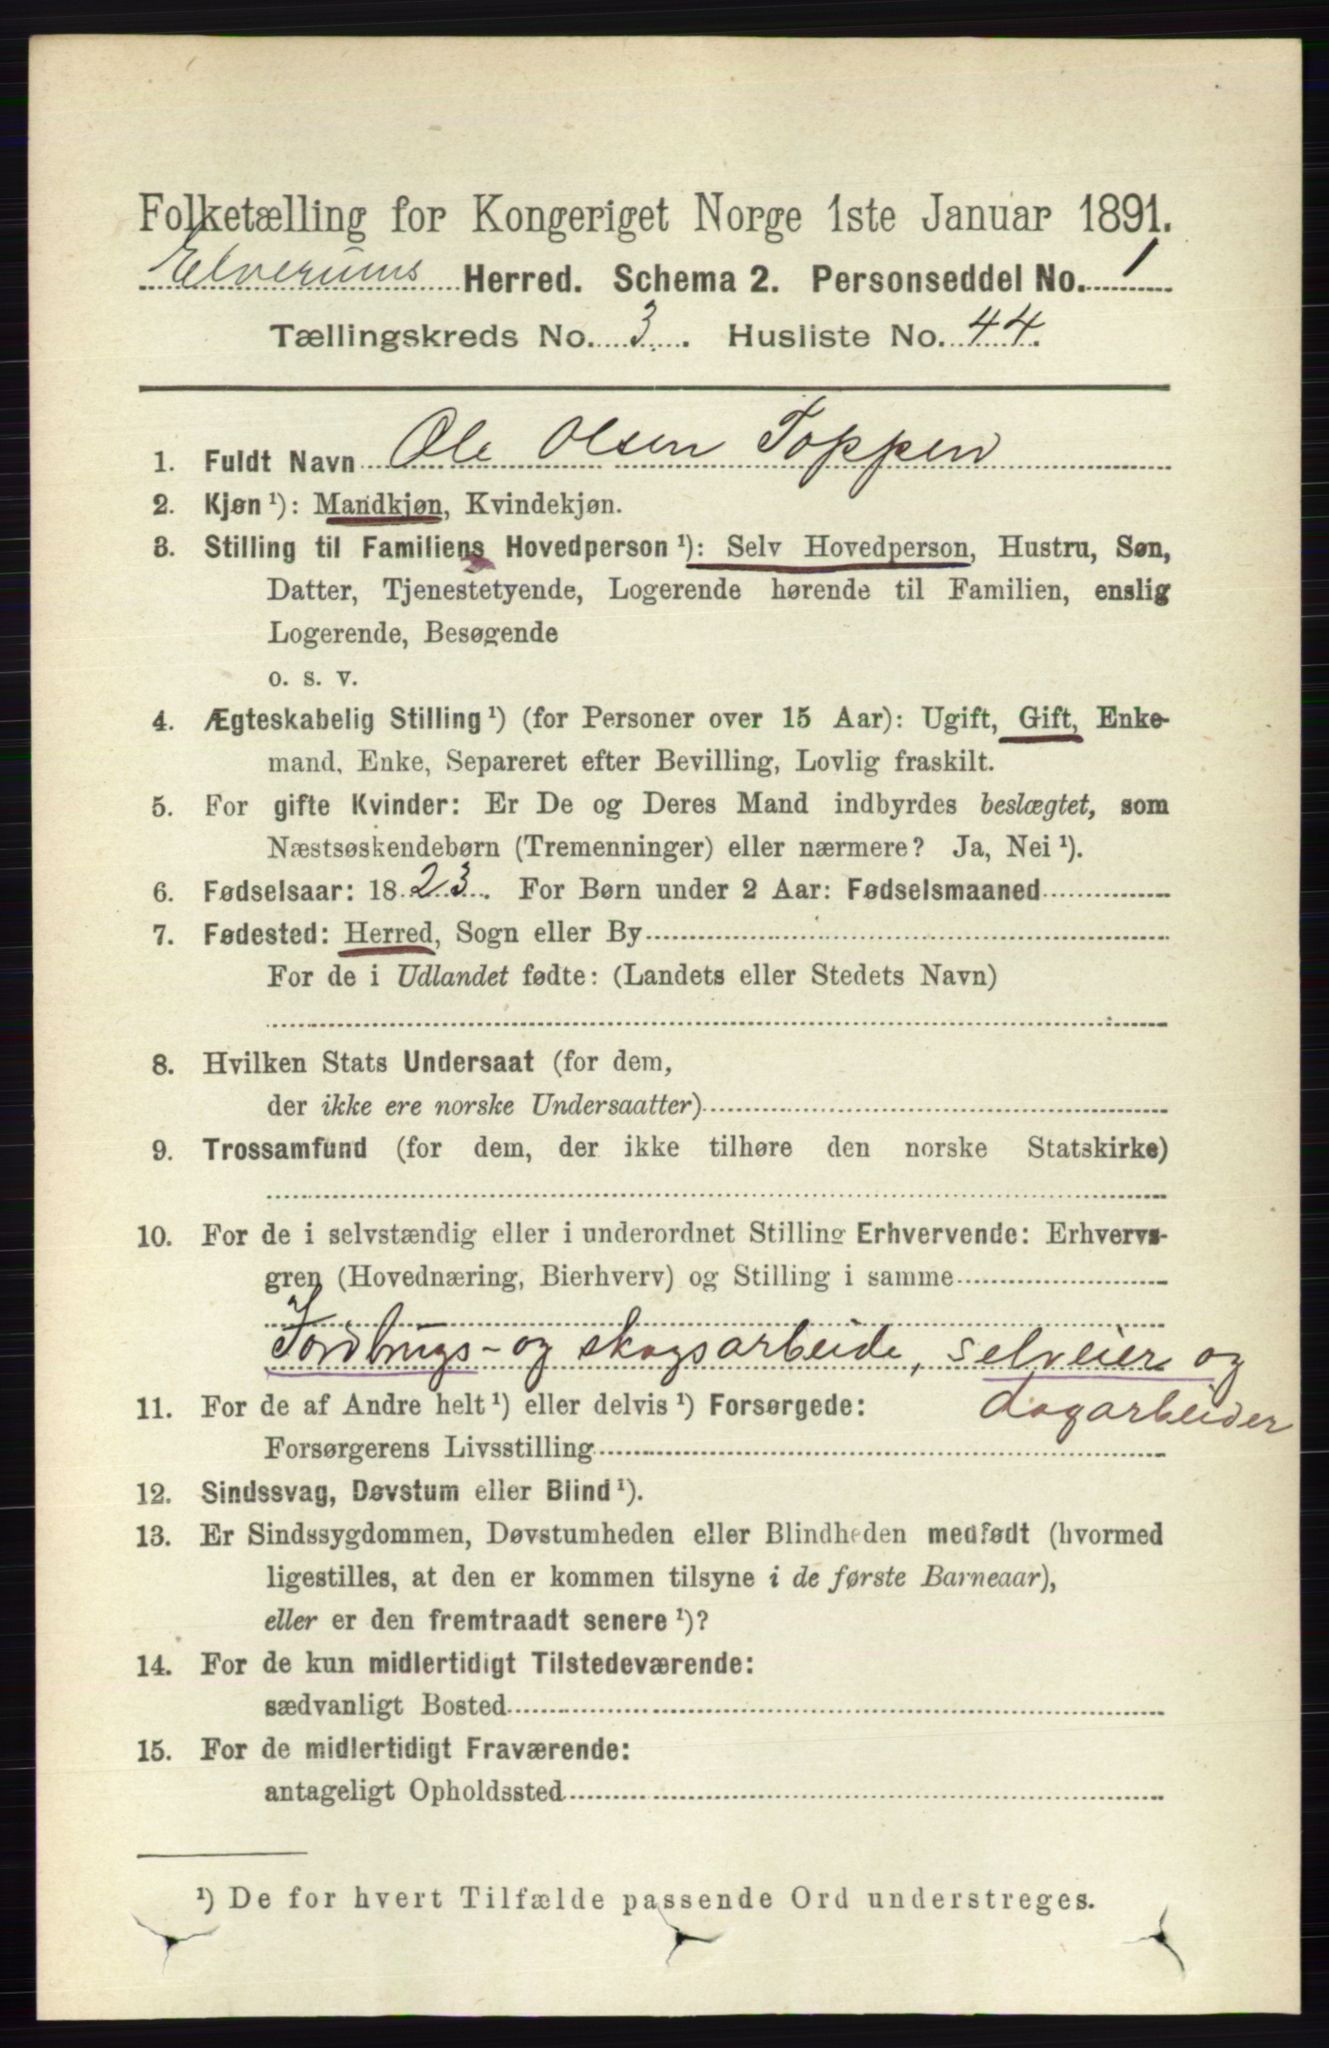 Folketælling for Kongeriget Norge 1ste Januar 1891.
Elverums Herred. Schema 2. Personseddel No. 1
Tællingskreds No. 3. Husliste No. 44.
1. Fuldt Navn Ole Olsen Toppen
2. Kjøn ¹): Mandkjøn, Kvindekjøn.
3. Stilling til Familiens Hovedperson ¹): Selv Hovedperson, Hustru, Søn,
Datter, Tjenestetyende, Logerende hørende til Familien, enslig
Logerende, Besøgende
o. s. v.
4. Ægteskabelig Stilling ¹) (for Personer over 15 Aar): Ugift, Gift, Enke-
mand, Enke, Separeret efter Bevilling, Lovlig fraskilt.
5. For gifte Kvinder: Er De og Deres Mand indbyrdes beslægtet, som
Næstsøskendebørn (Tremenninger) eller nærmere? Ja, Nei ¹).
6. Fødselsaar: 1823. For Børn under 2 Aar: Fødselsmaaned
7. Fødested: Herred, Sogn eller By
For de i Udlandet fødte: (Landets eller Stedets Navn)
8. Hvilken Stats Undersaat (for dem,
der ikke ere norske Undersaatter)
9. Trossamfund (for dem, der ikke tilhøre den norske Statskirke)
10. For de i selvstændig eller i underordnet Stilling Erhvervende: Erhvervs-
gren (Hovednæring, Bierhverv) og Stilling i samme
Jordbrugs- og skogsarbeide, selveier og
dagarbeider
11. For de af Andre helt ¹) eller delvis ¹) Forsørgede:
Forsørgerens Livsstilling
12. Sindssvag, Døvstum eller Blind ¹).
13. Er Sindssygdommen, Døvstumheden eller Blindheden medfødt (hvormed
ligestilles, at den er kommen tilsyne i de første Barneaar),
eller er den fremtraadt senere ¹)?
14. For de kun midlertidigt Tilstedeværende:
sædvanligt Bosted
15. For de midlertidigt Fraværende:
antageligt Opholdssted
¹) De for hvert Tilfælde passende Ord understreges.